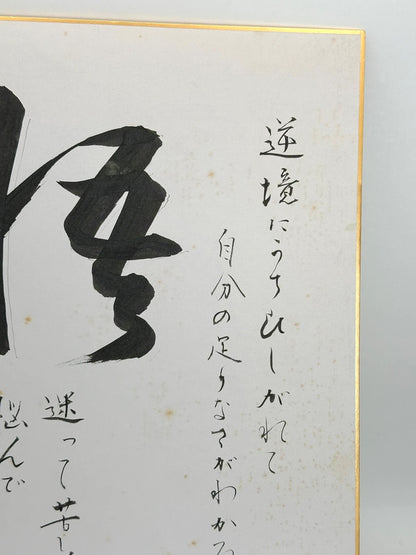 逆境にうちひしがれて
自分の足りなさがわかる
悟
迷って苦し
悩んで